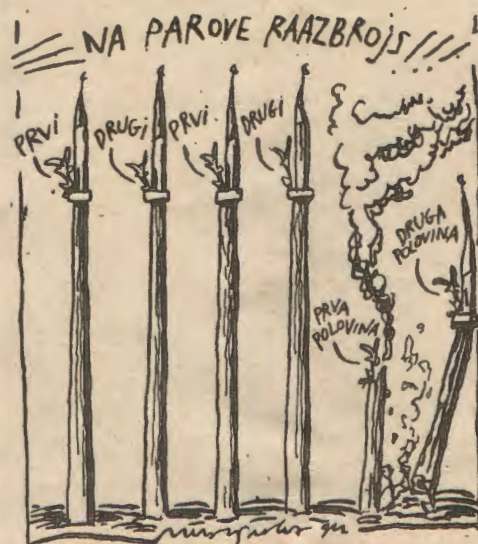 NA PAROVE RAAZBROJS
PRVI
DRUGI
PRVI
DRUGI
PRVA
POLOVINA
DRUGA
POLOVINA